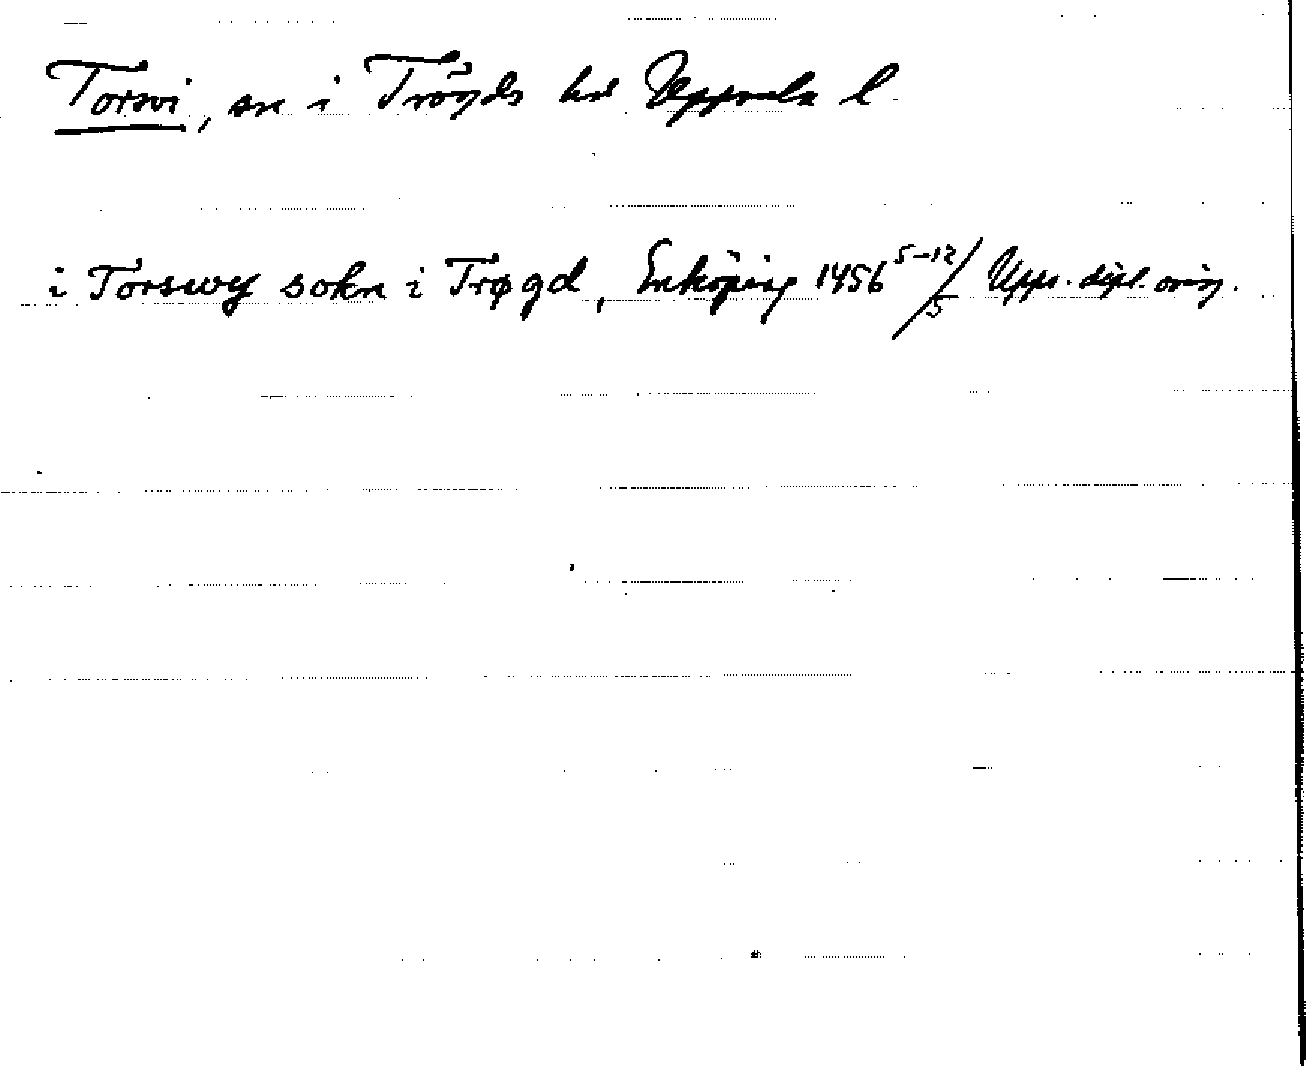 Torsvi, sn i Trögds hd Uppsala l.
i Torswy sokn i Trøgd, Enköping 1456 5-12/5 Upps. dipl. orig.